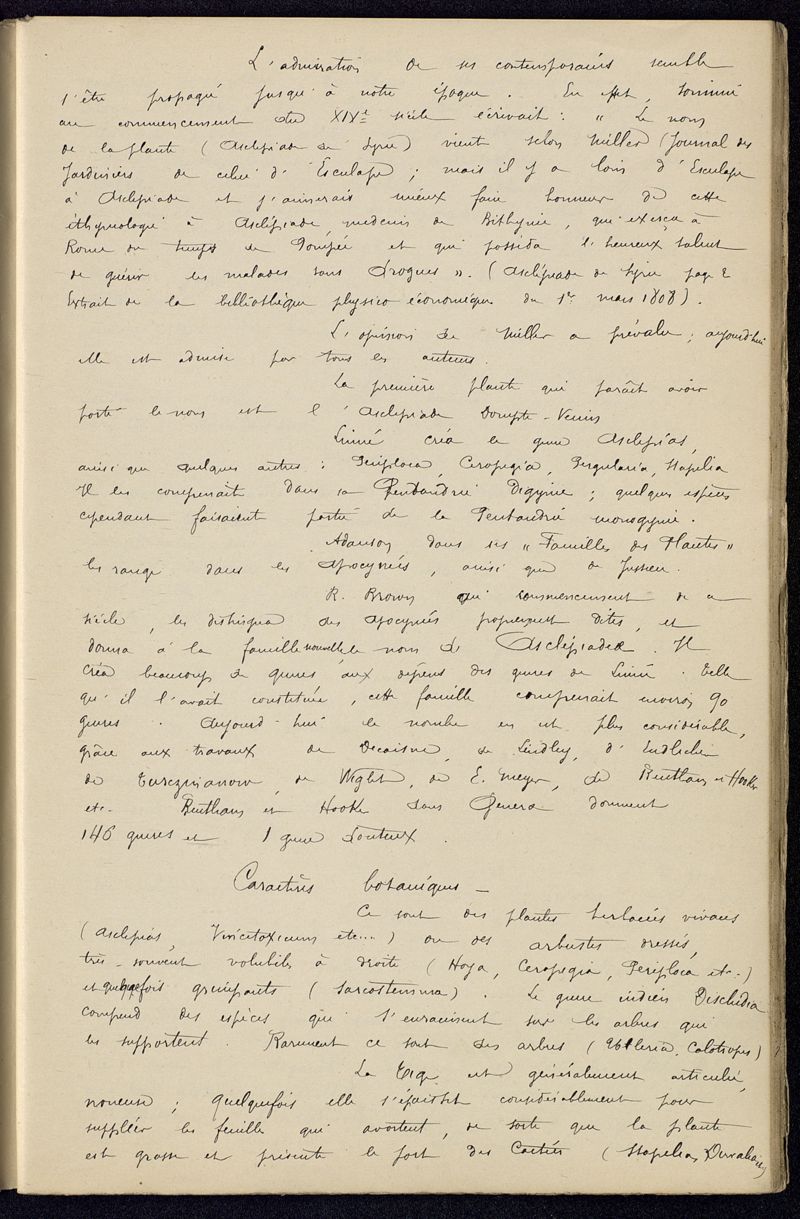 L'admiration de ses contemporains semble
s'être propagée jusqu'à notre époque. En effet, Sonnini
au commencement du XIXe siècle écrivait : " Le nom
de la plante (Asclépiade de Syrie) vient selon Miller (Journal des
Jardiniers de celui d'Esculape ; mais il y a loin d'Esculape
à Asclépiade et j'aimerais mieux faire honneur de cette
éthymologie à Asclépiade, médecin de Bithynie, qui exerça à
Rome du temps de Pompée et qui posséda l'heureux talent
de guérir les malades sans drogues ". (Asclépiade de Syrie page 2
Extrait de la bibliothèque physico économique du 1er mars 1808).
L'opinion de Miller a prévalu ; aujourd'hui
elle est admise par tous les auteurs.
La première plante qui paraît avoir
porté le nom est l'Asclépiade Dompte-Venin
Linné créa le genre Asclepias,
ainsi que quelques autres : Periploca, Ceropegia, Pergularia, Stapelia
Il les comprenait dans sa Pentandrie Digynie ; quelques espèces
cependant faisaient partie de la Pentandrie monogynie.
Adanson dans ses "Familles des Plantes"
les range dans les Apocynées, ainsi que de Jussieu.
R. Brown au commencement de ce
siècle, les distingua des Apocynées proprement dites, et
donna à la famille nouvelle le nom de Asclépiadeæ. Il
créa beaucoup de genres aux dépens des genres de Linné. Telle
qu'il l'avait constituée, cette famille comprenait environ 90
genres. Aujourd'hui le nombre en est plus considérable,
grâce aux travaux de Decaisne, de Lindley, d'Endlicher
de Turczaninow, de Wight, de E. Meyer, de Bentham et Hooker
etc. Bentham et Hooker dans Genera donnent
146 genres et 1 genre douteux.
Caractères botaniques -
Ce sont des plantes herbacées vivaces
(Asclepias, Vincetoxicum etc...) ou des arbustes dressés,
très-souvent volubiles à droite (Hoya, Ceropegia, Periploca etc..)
et quelquefois grimpants (Sarcostemma). Le genre indien Dischidia
comprend des espèces qui s'enracinent sur les arbres qui
les supportent. Rarement ce sont des arbres (Calotropis)
La tige est généralement articulée,
noueuse ; quelquefois elle s'épaissit considérablement pour
suppléer les feuilles qui avortent, de sorte que la plante
est grasse et présente le port des Cactées (Stapelia, Duvalia